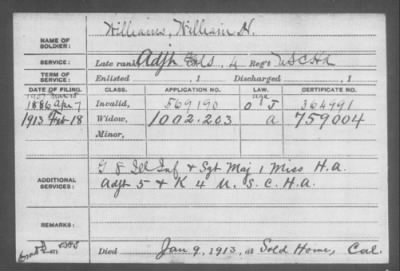 NAME OF SOLDIER: Williams, William H.
SERVICE: Late rank Adjt , 4 Reg't USCHA
TERM OF SERVICE: Enlisted , 1 Discharged , 1
DATE OF FILING. CLASS. APPLICATION NO. LAW. CERTIFICATE NO.
1886 Apr 7 Invalid, 569190 J 364791
1913 Feb 18 Widow, 1002.203 a 759004
Minor,
ADDITIONAL SERVICES: G 8 Ill Inf + Sgt Maj 1 Miss H.A.
Adjt 5 + K 4 U.S.C.H.A.
REMARKS:
Died Jan 9, 1913, at Sold Home, Cal.